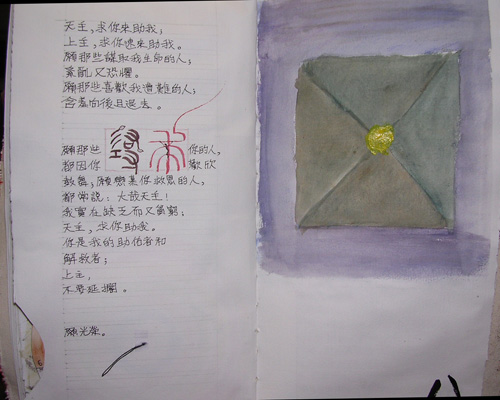 天主,求你來助我;
上主,求你速來助我。
願那些謀取我生命的人;
紊亂又恐懼。
願那些喜歡我遭難的人;
含羞向後且退去。
願那些尋求你的人,
都因你歡欣
鼓舞,願戀慕你救恩的人,
都常說:大哉天主!
我實在缺乏而又貧窮;
天主,求你助我。
你是我的助佑者和
解救者;
上主,
不要延擱。
願光榮。